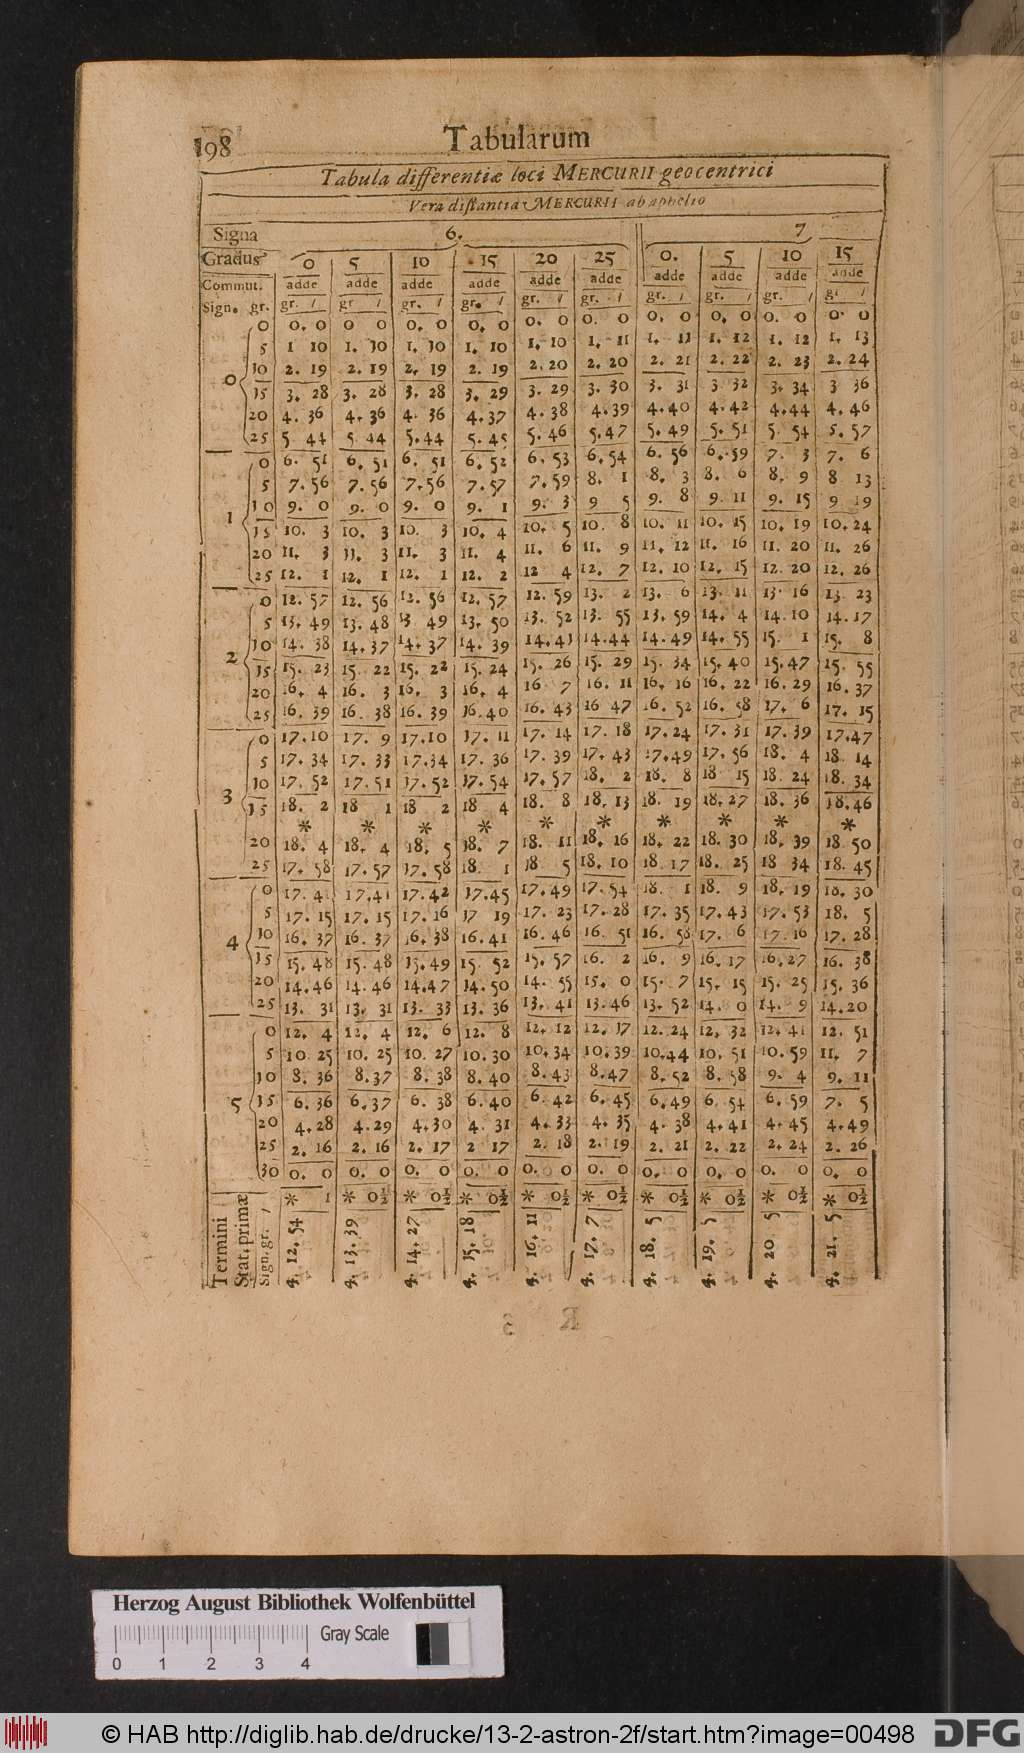 198 Tabularum
Tabula differentiæ loci MERCURII geocentrici
Vera distantia MERCURII ab aphelio
Signa 6. 7
Gradus 0 5 10 15 20 25 0. 5 10 15
Commut. adde adde adde adde adde adde adde adde adde adde
Sign. gr. gr. / gr / gr. / gr. / gr. / gr. / gr. / gr. / gr. / gr /
0 0. 0 0 0 0. 0 0. 0 0. 0 0. 0 0. 0 0. 0 0. 0 0. 0
5 1 10 1. 10 1. 10 1. 10 1. 10 1. 11 1. 11 1. 12 1. 12 1. 13
0 10 2. 19 2. 19 2. 19 2. 19 2. 20 2. 20 2. 21 2. 22 2. 23 2. 24
15 3. 28 3. 28 3. 28 3. 29 3. 29 3. 30 3. 31 3 32 3. 34 3 36
20 4. 36 4. 36 4. 36 4. 37 4. 38 4. 39 4. 40 4. 42 4. 44 4. 46
25 5 44 5 44 5. 44 5. 45 5. 46 5. 47 5. 49 5. 51 5. 54 5. 57
0 6. 51 6. 51 6. 51 6. 52 6. 53 6. 54 6. 56 6. 59 7. 3 7. 6
5 7. 56 7. 56 7. 56 7. 57 7. 59 8. 1 8. 3 8. 6 8. 9 8 13
1 10 9. 0 9. 0 9. 0 9. 1 9. 3 9 5 9. 8 9. 11 9. 15 9 19
15 10. 3 10. 3 10. 3 10. 4 10. 5 10. 8 10. 11 10. 15 10. 19 10. 24
20 11. 3 11. 3 11. 3 11. 4 11. 6 11. 9 11. 12 11. 16 11. 20 11. 26
25 12. 1 12. 1 12. 1 12. 2 12 4 12. 7 12. 10 12. 15 12. 20 12. 26
0 12. 57 12. 56 12. 56 12. 57 12. 59 13. 2 13. 6 13. 11 13. 16 13 23
5 13. 49 13. 48 13 49 13. 50 13. 52 13. 55 13. 59 14. 4 14. 10 14. 17
2 10 14. 38 14. 37 14. 37 14. 39 14. 41 14. 44 14. 49 14. 55 15. 1 15. 8
15 15. 23 15. 22 15. 22 15. 24 15. 26 15. 29 15. 34 15. 40 15. 47 15. 55
20 16. 4 16. 3 16. 3 16. 4 16 7 16. 11 16. 16 16. 22 16. 29 16. 37
25 16. 39 16. 38 16. 39 16. 40 16. 43 16 47 16. 52 16. 58 17. 6 17. 15
0 17. 10 17. 9 17. 10 17. 11 17. 14 17. 18 17. 24 17. 31 17. 39 17. 47
5 17. 34 17. 33 17. 34 17. 36 17. 39 17. 43 17. 49 17. 56 18. 4 18 14
3 10 17. 52 17. 51 17. 52 17. 54 17. 57 18. 2 18. 8 18 15 18. 24 18. 34
15 18. 2 18 1 18 2 18 4 18. 8 18. 13 18. 19 18. 27 18. 36 18. 46
* * * * * * * * * *
20 18. 4 18. 4 18. 5 18. 7 18. 11 18. 16 18. 22 18. 30 18. 39 18 50
25 17. 58 17. 57 17. 58 18. 1 18 5 18. 10 18. 17 18. 25 18 34 18. 45
0 17. 41 17. 41 17. 42 17. 45 17. 49 17. 54 18. 1 18. 9 18. 19 18. 30
5 17. 15 17. 15 17. 16 17 19 17. 23 17. 28 17. 35 17. 43 17. 53 18. 5
4 10 16. 37 16. 37 16. 38 16. 41 16. 46 16. 51 16. 58 17. 6 17. 16 17. 28
15 15. 48 15. 48 15. 49 15 52 15. 57 16. 2 16. 9 16. 17 16. 27 16. 38
20 14. 46 14. 46 14. 47 14. 50 14. 55 15. 0 15. 7 15. 15 15. 25 15. 36
25 13. 31 13. 31 13. 33 13. 36 13. 41 13. 46 13. 52 14. 0 14. 9 14. 20
0 12. 4 12. 4 12. 6 12. 8 12. 12 12. 17 12. 24 12. 32 12. 41 12. 51
5 10 25 10. 25 10. 27 10. 30 10. 34 10. 39 10. 44 10. 51 10. 59 11. 7
10 8. 36 8. 37 8. 38 8. 40 8. 43 8. 47 8. 52 8. 58 9. 4 9. 11
5 15 6. 36 6. 37 6. 38 6. 40 6. 42 6. 45 6. 49 6. 54 6. 59 7. 5
20 4. 28 4. 29 4. 30 4. 31 4. 33 4. 35 4. 38 4. 41 4. 45 4. 49
25 2. 16 2. 16 2. 17 2 17 2. 18 2. 19 2. 21 2. 22 2. 24 2. 26
30 0. 0 0. 0 0. 0 0. 0 0. 0 0. 0 0. 0 0. 0 0. 0 0. 0
* 1 * 0½ * 0½ * 0½ * 0½ * 0½ * 0½ * 0½ * 0½ * 0½
Termini
Stat. primæ
Sign. gr. /
4. 12. 54 4. 13. 39 4. 14. 27 4. 15. 18 4. 16. 11 4. 17. 7 4. 18. 5 4. 19. 5 4. 20 5 4. 21. 5
Herzog August Bibliothek Wolfenbüttel
Gray Scale
0 1 2 3 4
© HAB http://diglib.hab.de/drucke/13-2-astron-2f/start.htm?image=00498 DFG